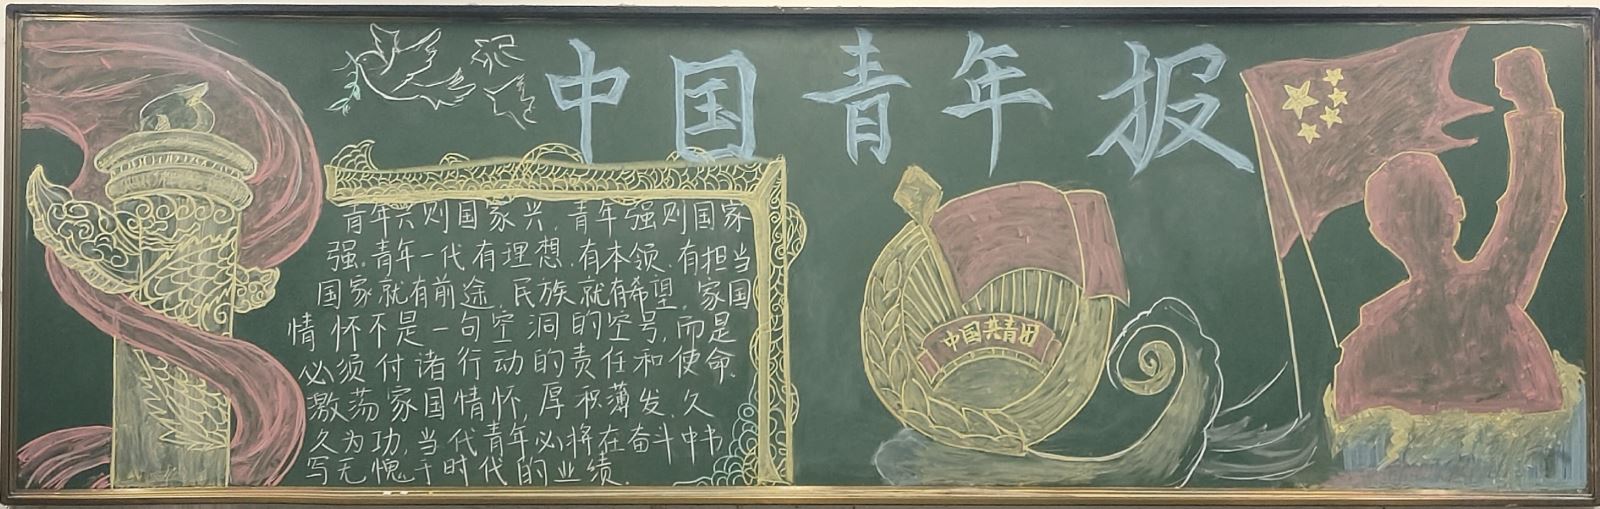 中国青年报
青年兴则国家兴,青年强则国家
强.青年一代有理想.有本领.有担当
国家就有前途,民族就有希望.家国
情怀不是一句空洞的空号,而是
必须付诸行动的责任和使命.
激荡家国情怀,厚积薄发.久
久为功,当代青年必将在奋斗中书
写无愧于时代的业绩.
中国共青团